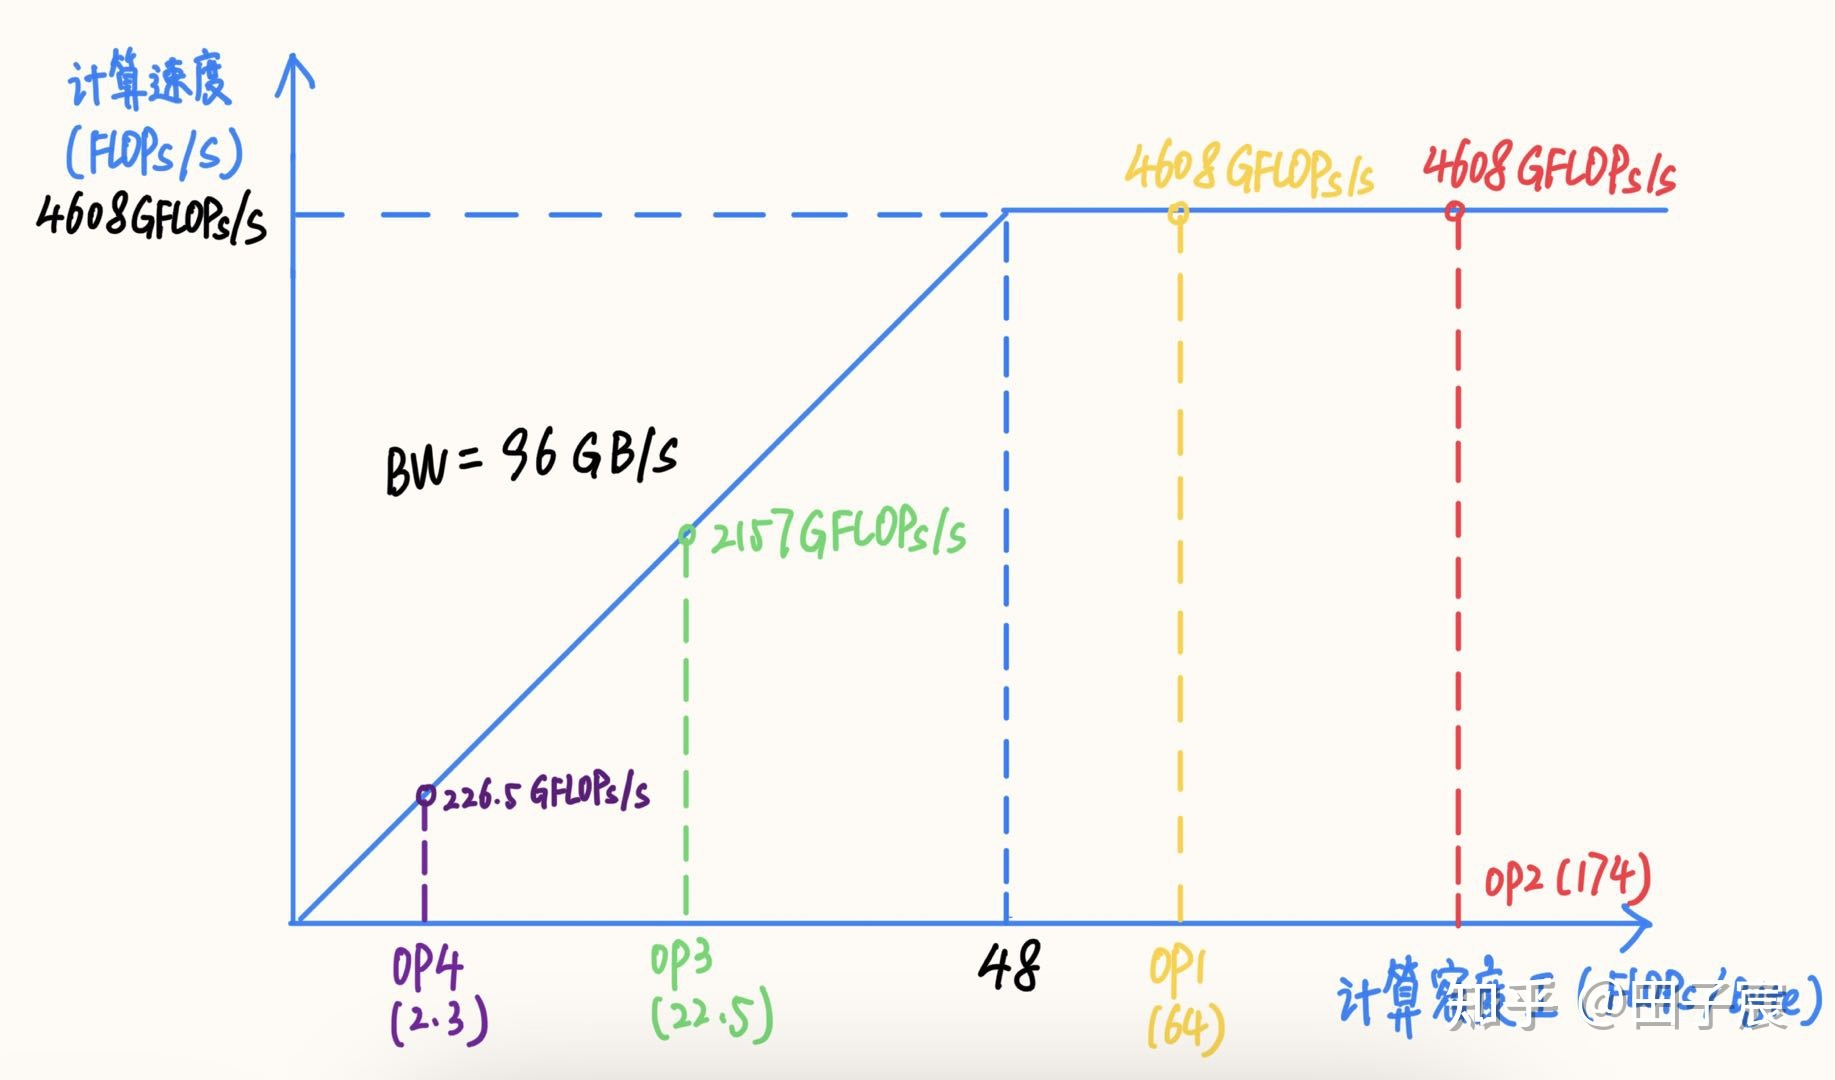 计算速度
(FLOPs/s)
4608GFLOPs/s
4608GFLOPs/s
4608GFLOPs/s
BW = 96 GB/s
2157GFLOPs/s
226.5 GFLOPs/s
OP2 (174)
OP4
(2.3)
OP3
(22.5)
48
OP1
(64)
计算密度I (FLOPs/Byte)
知乎 @田子宸